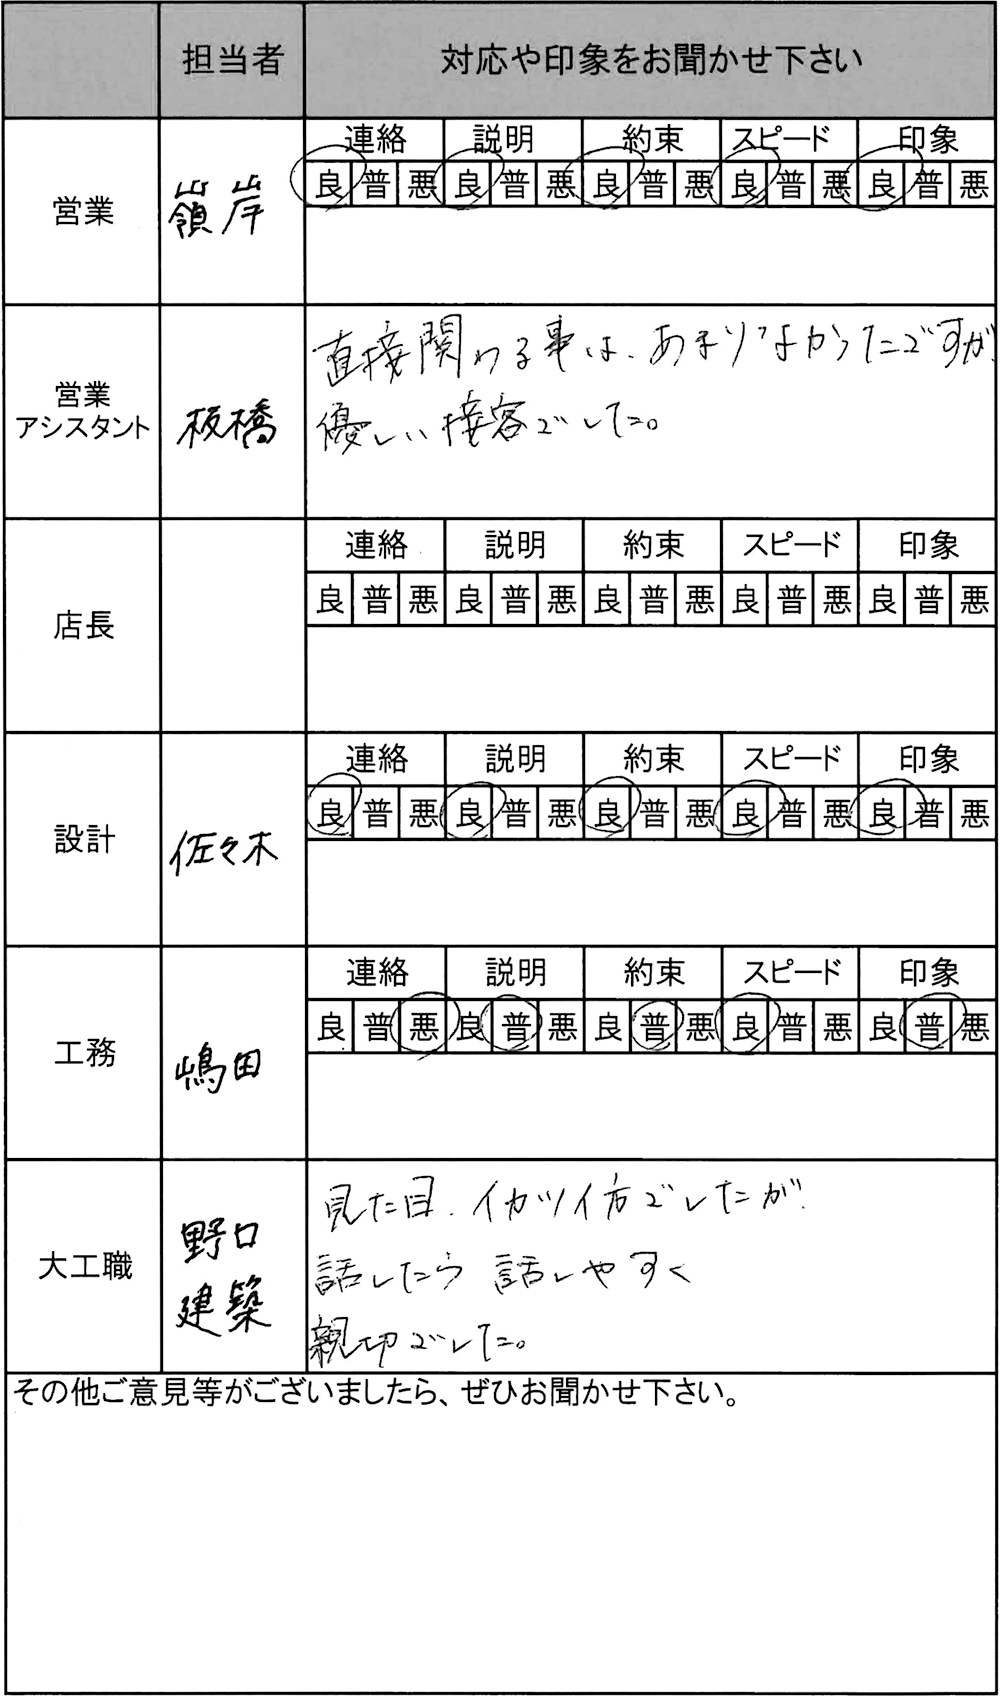 担当者 対応や印象をお聞かせ下さい
営業 嶺岸
連絡 説明 約束 スピード 印象
良 普 悪 良 普 悪 良 普 悪 良 普 悪 良 普 悪
営業
アシスタント
板橋
直接関わる事は、あまりなかったですが、
優しい接客でした。
店長
連絡 説明 約束 スピード 印象
良 普 悪 良 普 悪 良 普 悪 良 普 悪 良 普 悪
設計 佐々木
連絡 説明 約束 スピード 印象
良 普 悪 良 普 悪 良 普 悪 良 普 悪 良 普 悪
工務 嶋田
連絡 説明 約束 スピード 印象
良 普 悪 良 普 悪 良 普 悪 良 普 悪 良 普 悪
大工職
野口
建築
見た目、イカツイ方でしたが、
話したら 話しやすく
親切でした。
その他ご意見等がございましたら、ぜひお聞かせ下さい。